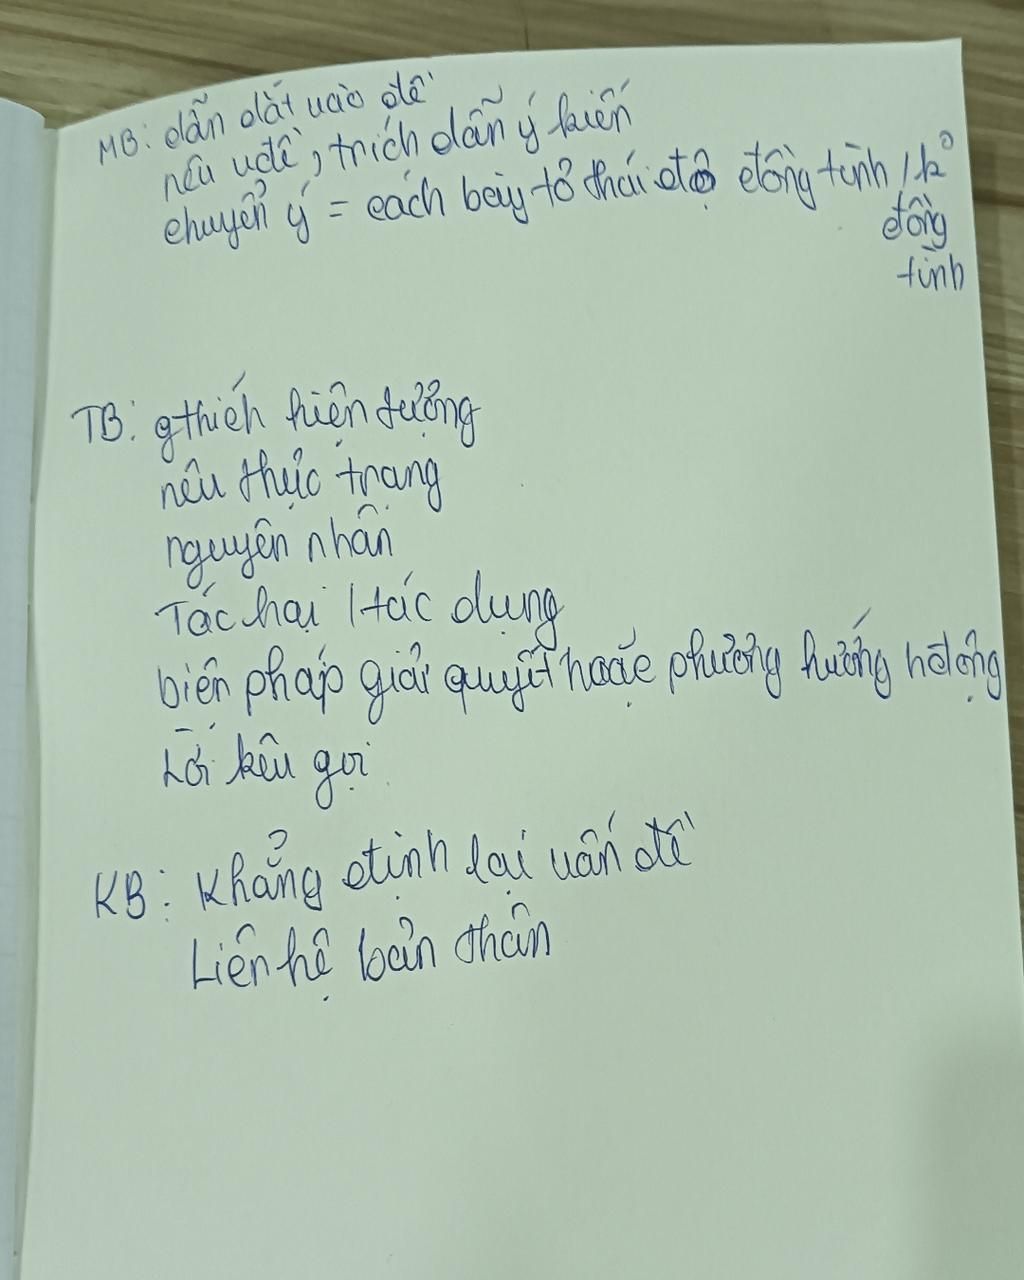 MB: dẫn dắt vào đề
nêu vđề, trích dẫn ý kiến
chuyển ý = cách bày tỏ thái độ đồng tình / k°
đồng
tình
TB: gthích hiện tượng
nêu thực trạng
nguyên nhân
Tác hại / tác dụng
biện pháp giải quyết hoặc phương hướng hđộng
Lời kêu gọi
KB: Khẳng định lại vấn đề
Liên hệ bản thân